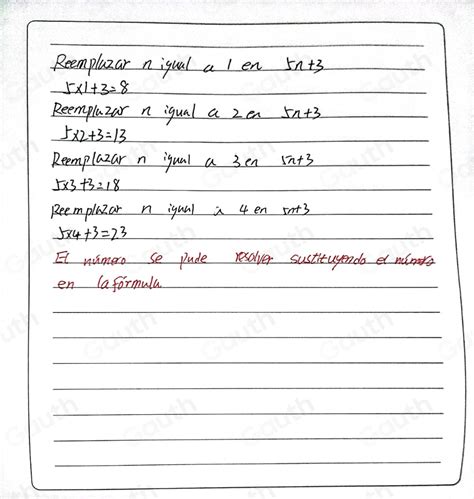 Reemplazar n igual a 1 en 5n+3
5x1+3=8
Reemplazar n igual a 2 en 5n+3
5x2+3=13
Reemplazar n igual a 3 en 5n+3
5x3+3=18
Reemplazar n igual a 4 en 5n+3
5x4+3=23
El número se pude resolver sustituyendo el número
en la fórmula.